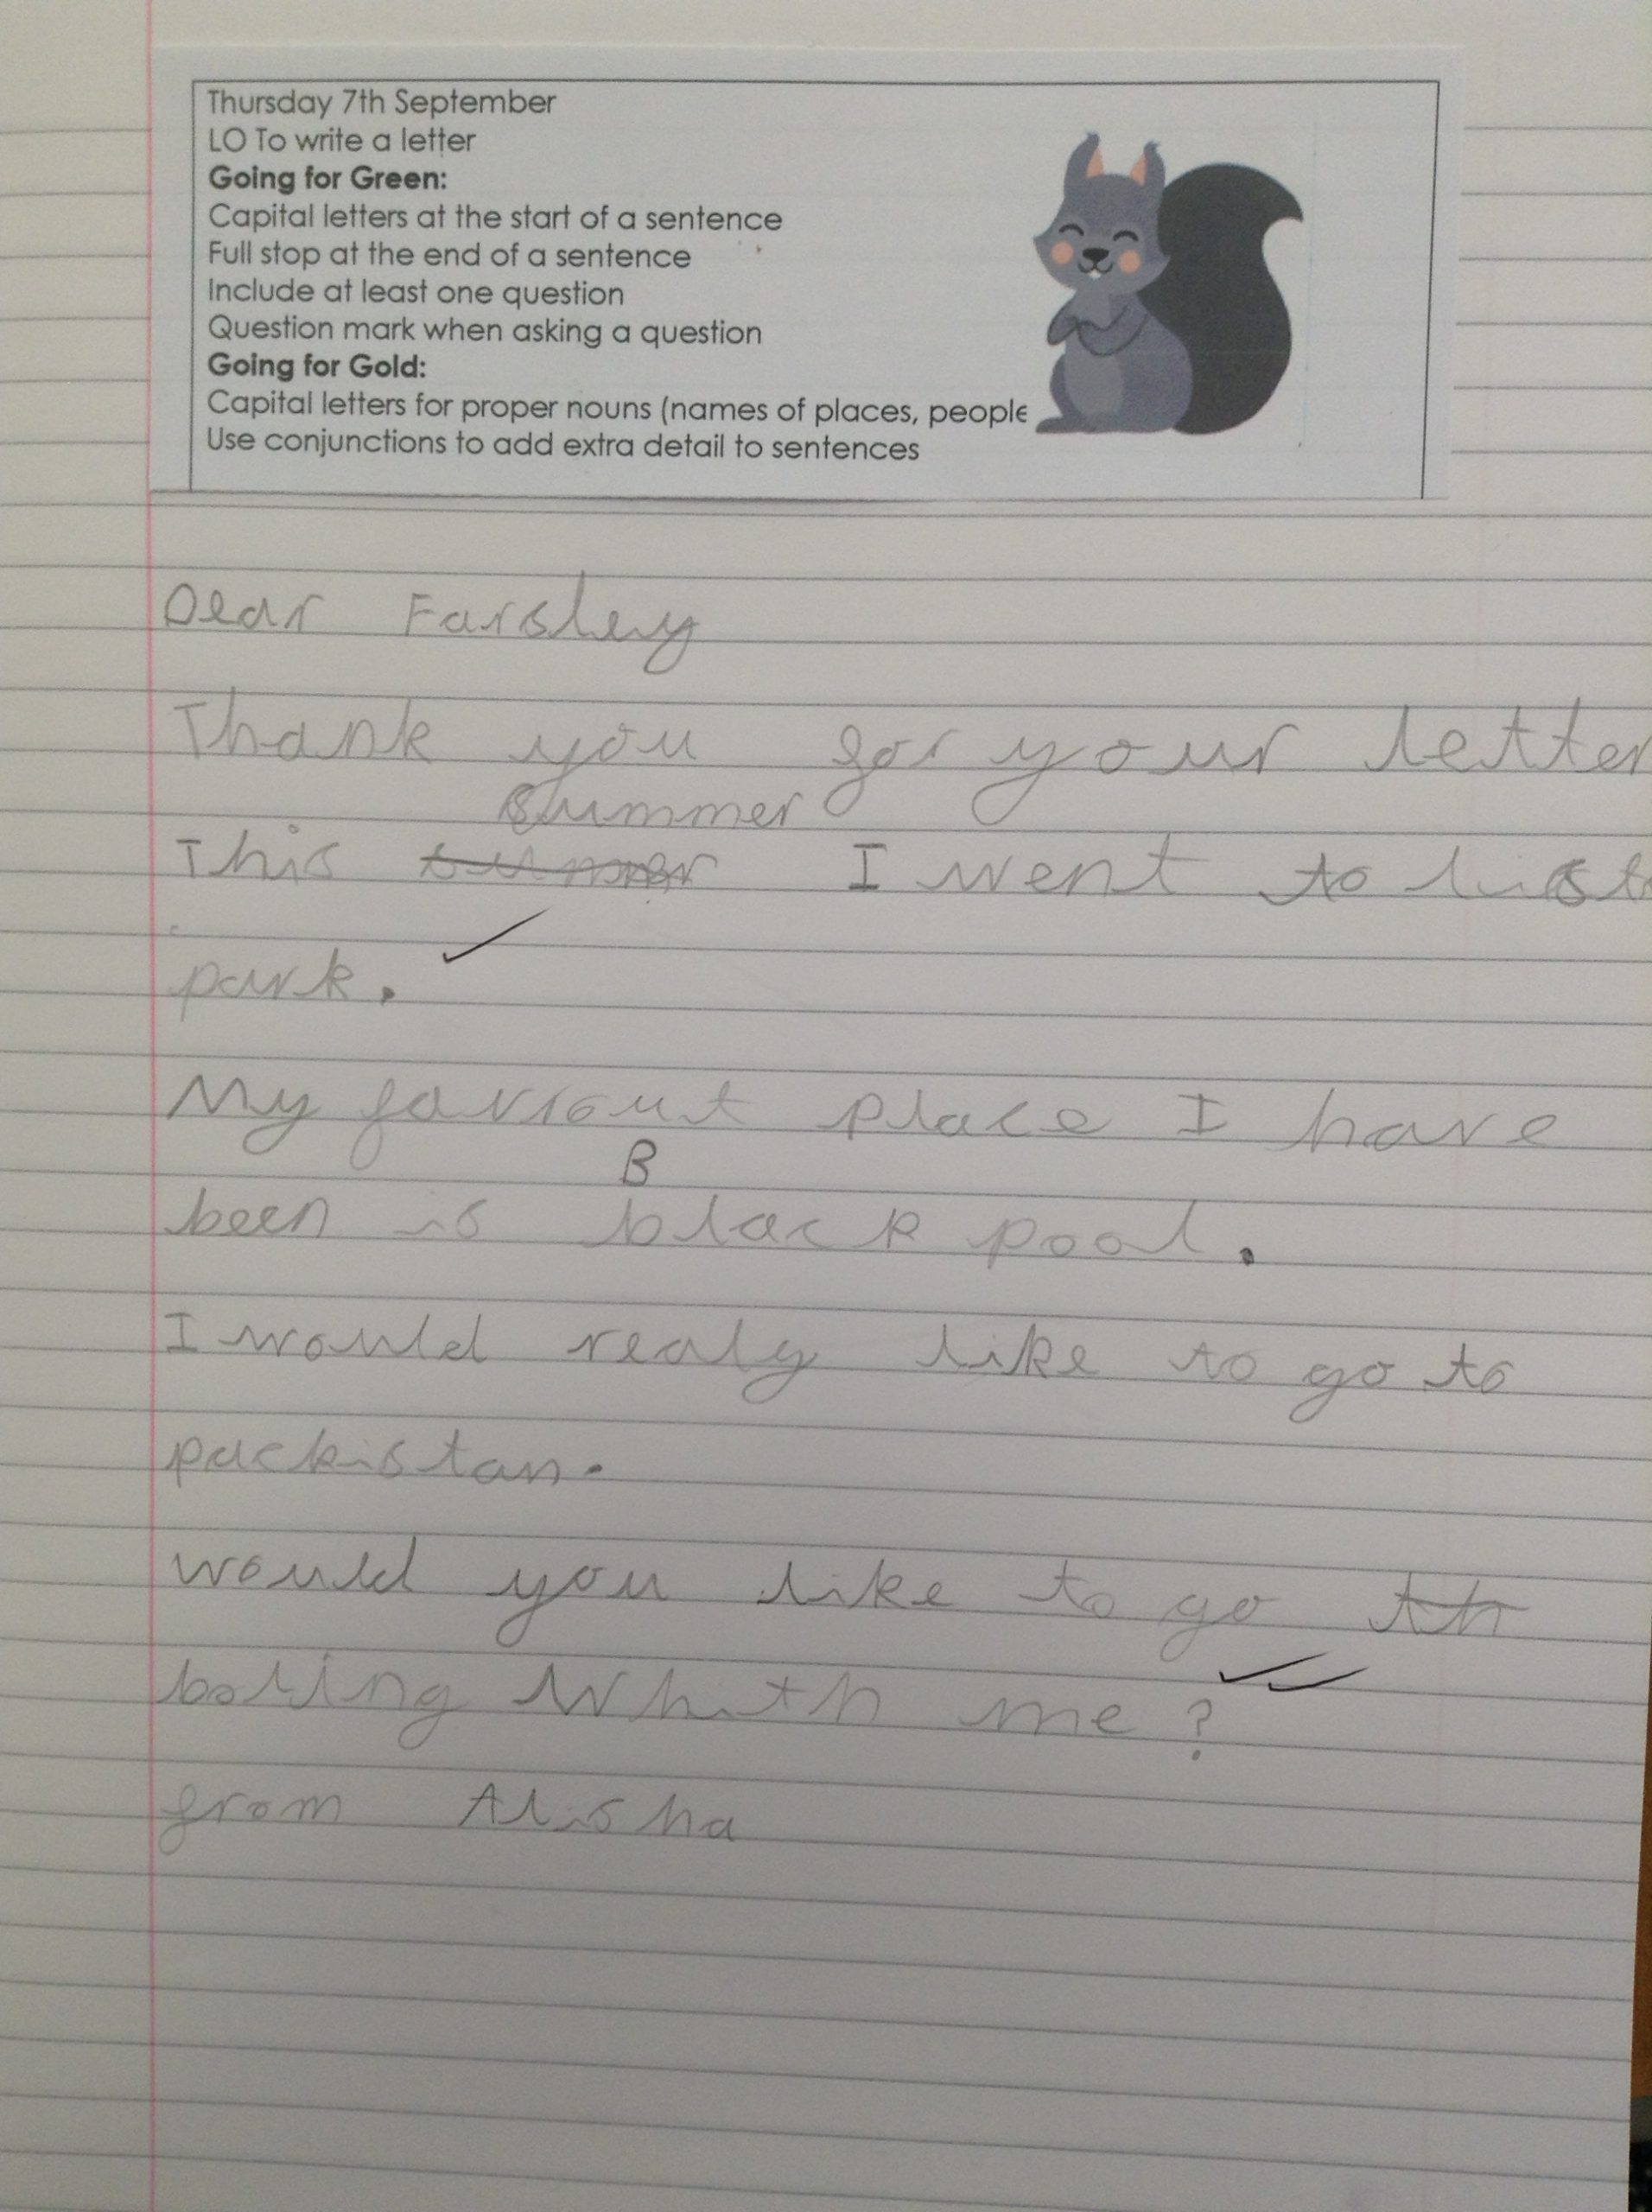 Thursday 7th September
LO To write a letter
Going for Green:
Capital letters at the start of a sentence
Full stop at the end of a sentence
Include at least one question
Question mark when asking a question
Going for Gold:
Capital letters for proper nouns (names of places, people
Use conjunctions to add extra detail to sentences
Dear Farsley
Thank you for your letter
summer
This I went to
park.
My faviout place I have
B
been is black pool.
I would realy like to go to
packistan.
would you like to go
boling Whith me?
from Alisha